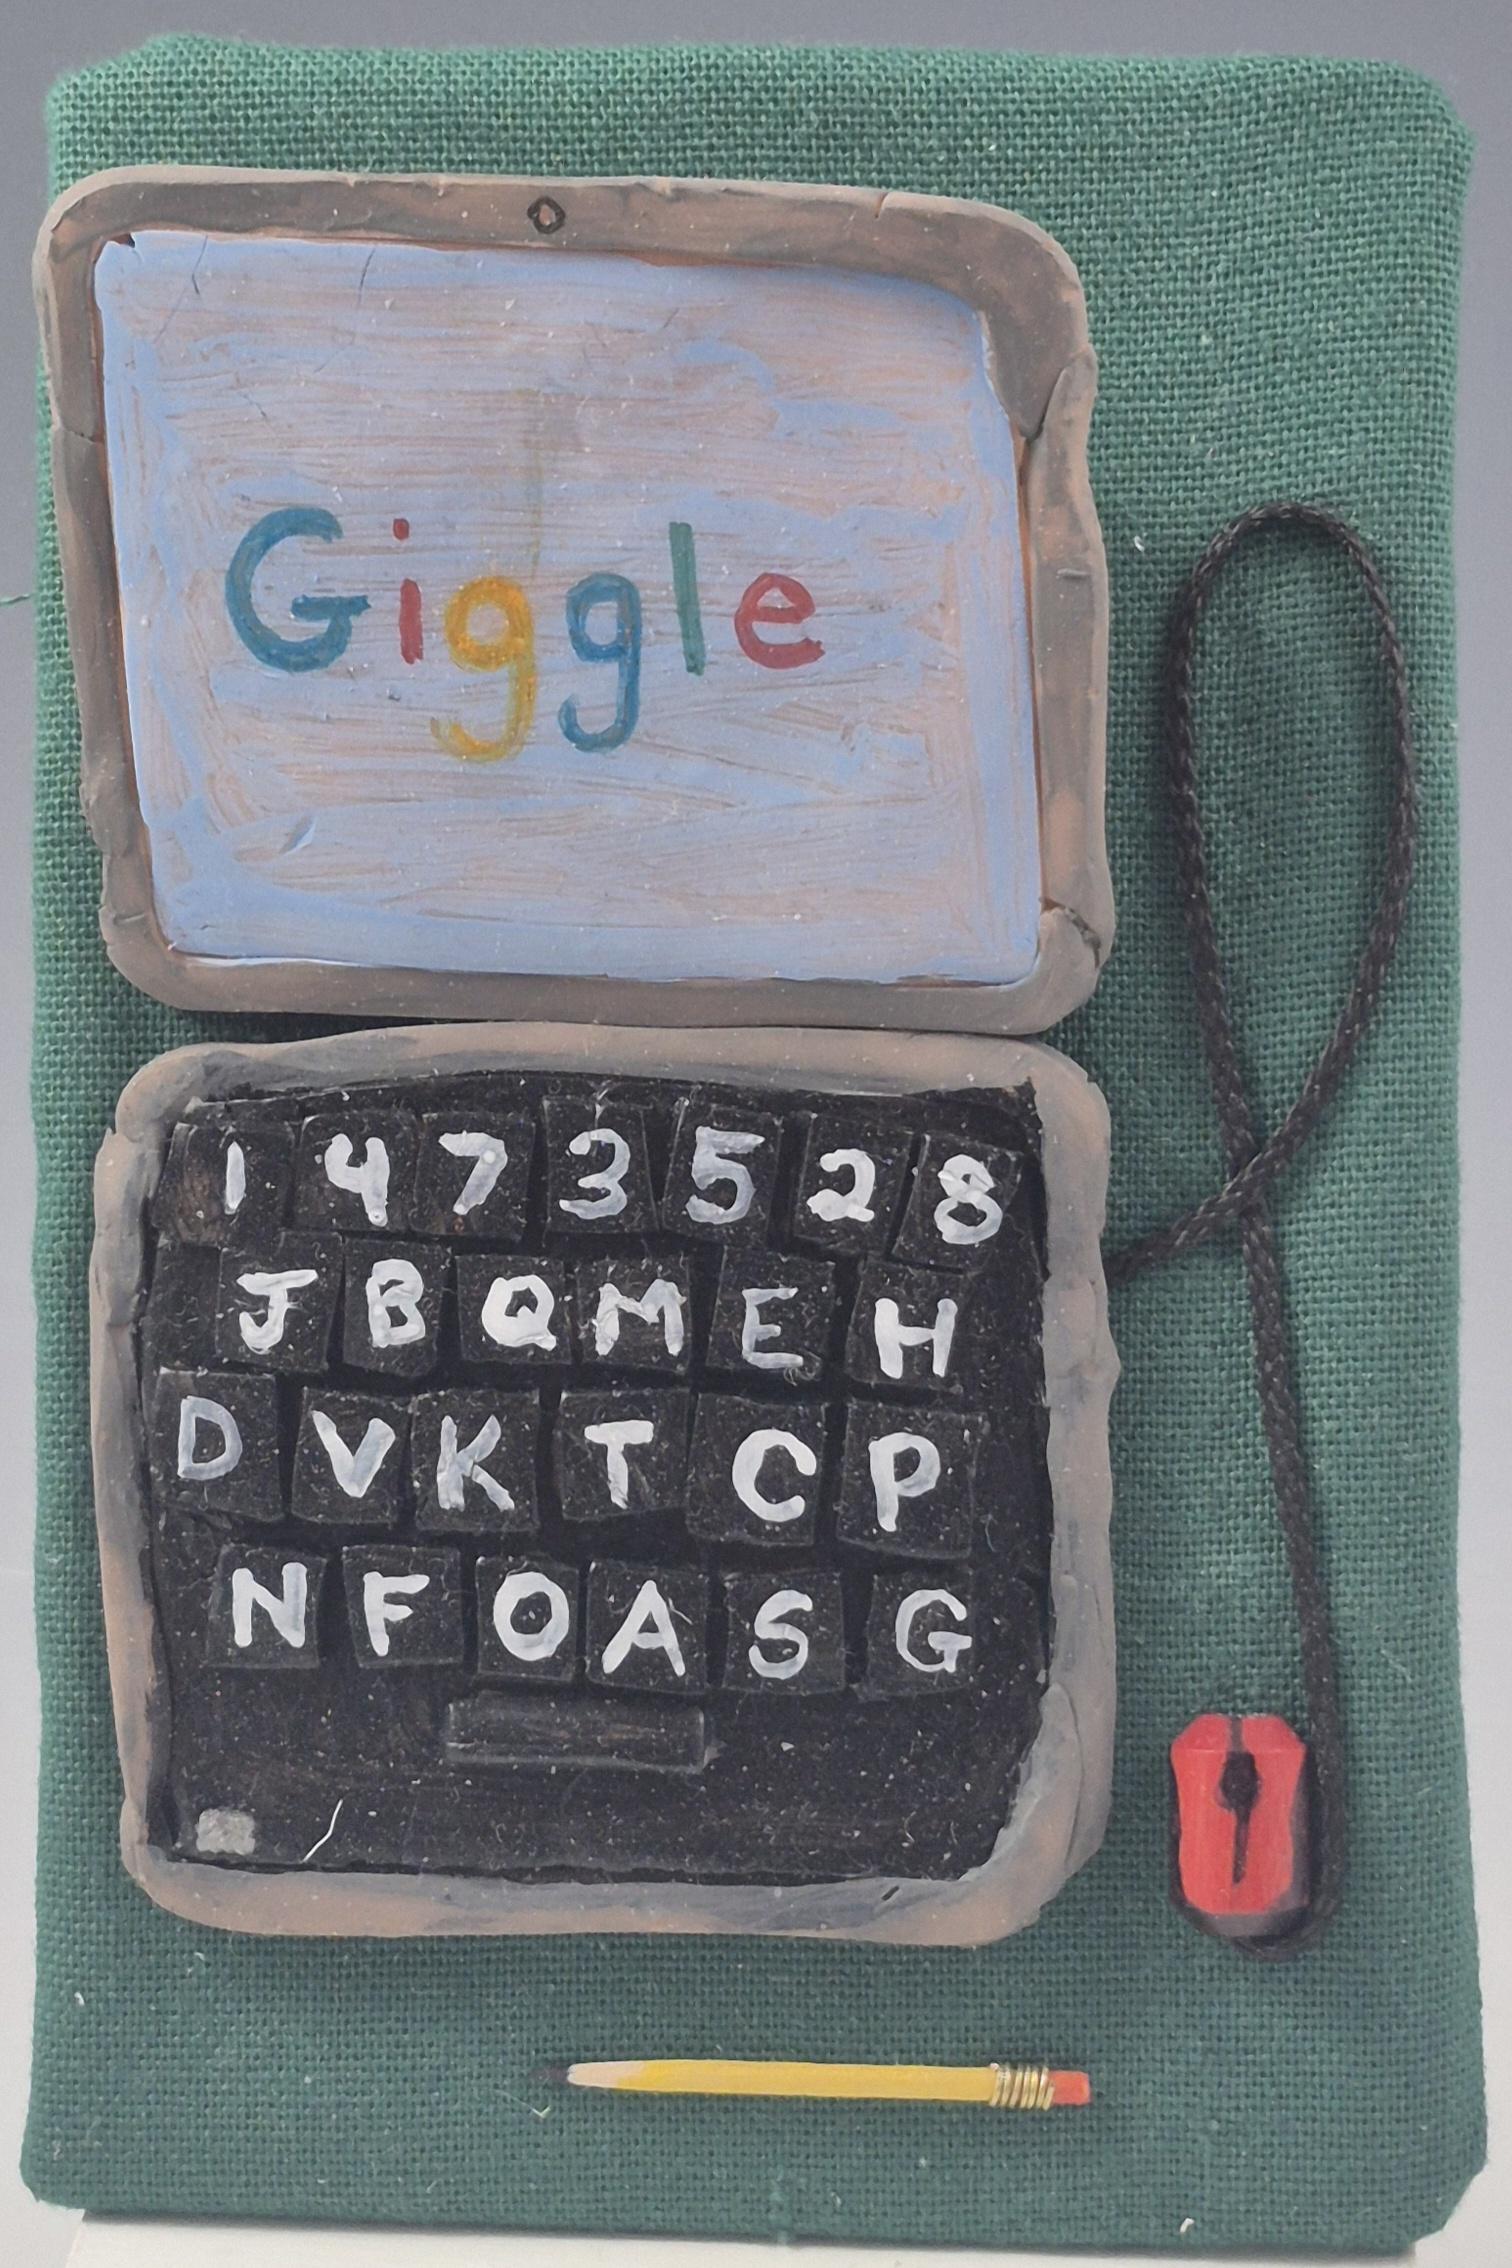 Giggle
1 4 7 3 5 2 8
J B Q M E H
D V K T C P
N F O A S G